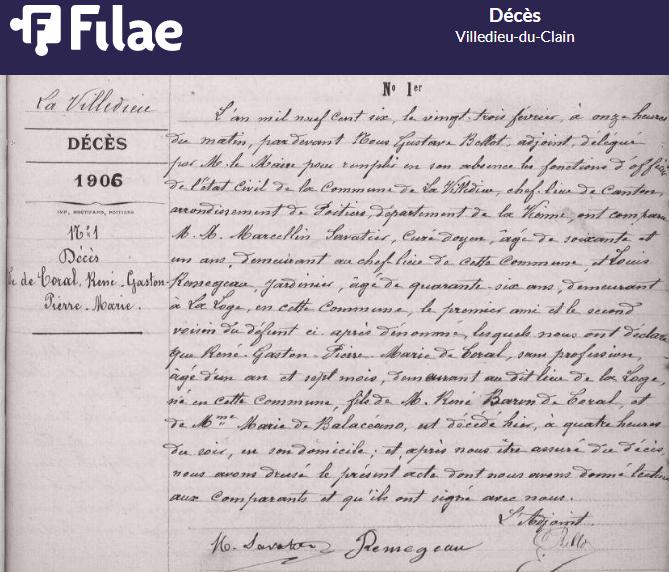 Filae
Décès
Villedieu-du-Clain
La Villedieu
DÉCÈS
1906
IMP. POITIERS
Nº 1
Décès
de Coral, René-Gaston-
Pierre-Marie.
Nº 1er
L'an mil neuf cent six, le vingt-trois février, à onze heures
du matin, par devant Nous Gustave Bellot, adjoint, délégué
par M. le Maire pour remplir en son absence les fonctions d'offici
de l'état civil de la Commune de La Villedieu, chef-lieu de Canton
arrondissement de Poitiers, département de la Vienne, ont comparu
M. M. Marcellin Savatier, Curé doyen, âgé de soixante et
un ans, demeurant au chef lieu de cette Commune, et Louis
jardinier, âgé de quarante-six ans, demeurant
à La Loge, en cette Commune, le premier ami et le second
voisin du défunt ci-après dénommé, lesquels nous ont déclaré
que René-Gaston-Pierre-Marie de Coral, sans profession,
âgé d'un an et sept mois, demeurant au dit lieu de la Loge
né en cette Commune, fils de M. René Baron de Coral, et
de Mme Marie de est décédé hier, à quatre heures
du soir, en son domicile; et, après nous être assuré du décès
nous avons dressé le présent acte dont nous avons donné lecture
aux comparants et qu'ils ont signé avec nous.
L'Adjoint
M. Savatier